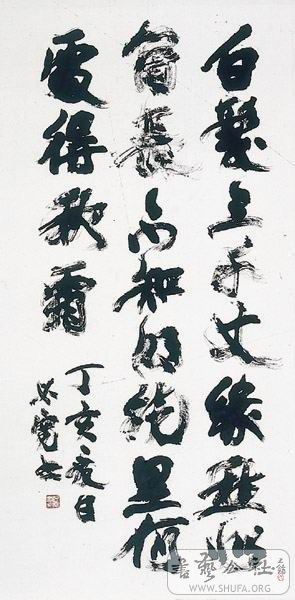 白髮三千丈緣愁似
箇長不知明鏡里何
處得秋霜
丁亥夏日
書藝公社
WWW.SHUFA.ORG